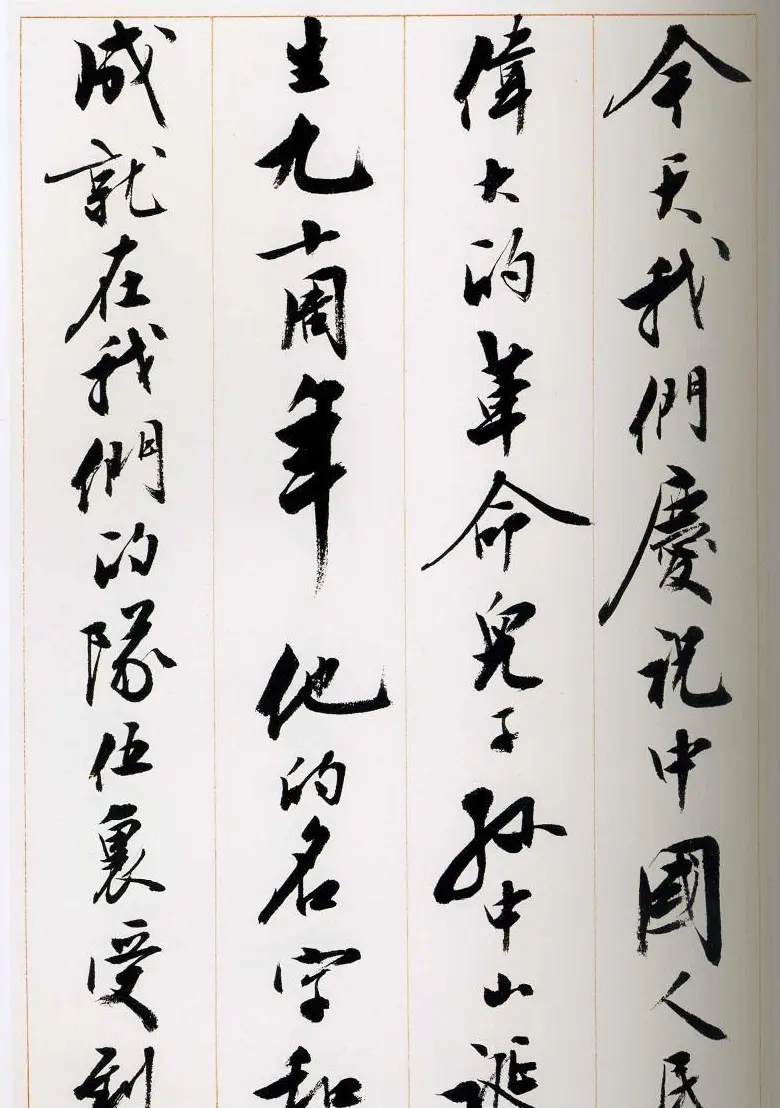 今天我們慶祝中國人民
偉大的革命兒子孫中山誕
生九十周年他的名字和
成就在我們的隊伍裏受到